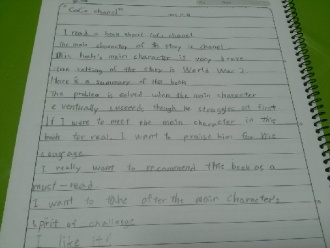 "Coco chanel"
I read a book about Coco chanel
The main character of th story is chanel
This book's main character is very brave
The setting of the story is World War 2.
Here is a summary of the book
The problem is solved when the main character
eventually succeeds though he struggles at first
If I were to meet the main character in this
book for real. I want to praise him for his
courage
I really want to recommend this book as a
must-read
I want to take after the main character's
spirit of challenge
I like it!